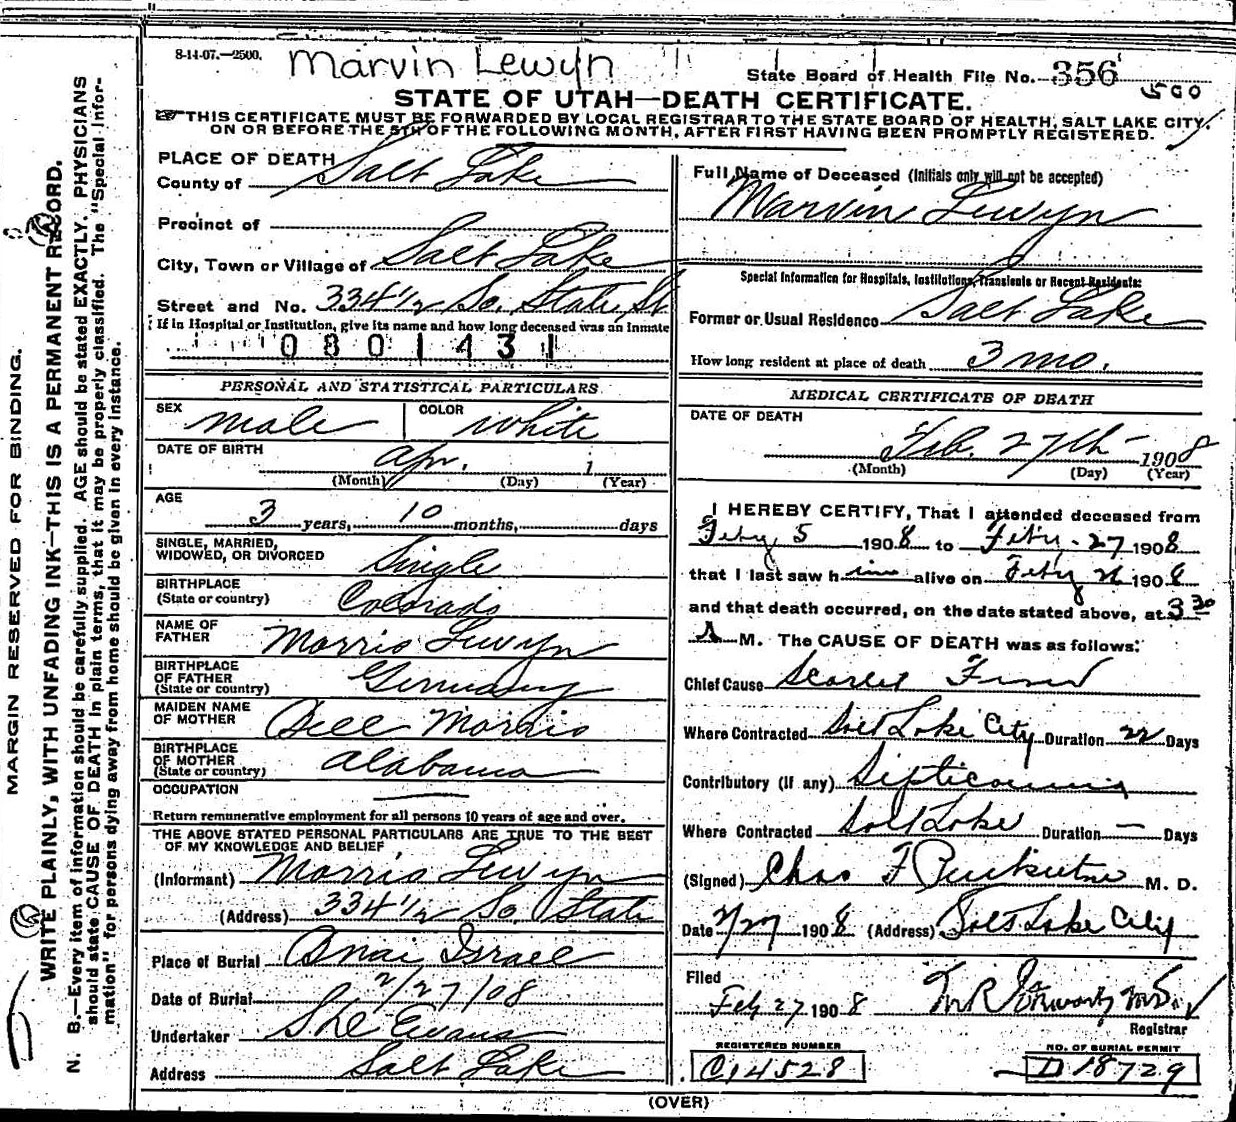 8-14-07.—2500.
Marvin Lewyn
State Board of Health File No. 356
500
STATE OF UTAH—DEATH CERTIFICATE.
THIS CERTIFICATE MUST BE FORWARDED BY LOCAL REGISTRAR TO THE STATE BOARD OF HEALTH, SALT LAKE CITY,
ON OR BEFORE THE 5TH OF THE FOLLOWING MONTH, AFTER FIRST HAVING BEEN PROMPTLY REGISTERED.
PLACE OF DEATH
County of Salt Lake
Precinct of
City, Town or Village of Salt Lake
Street and No. 334 1/2 So. State St
If in Hospital or Institution, give its name and how long deceased was an inmate
0801431
PERSONAL AND STATISTICAL PARTICULARS
SEX male COLOR White
DATE OF BIRTH Apr. 1
(Month) (Day) (Year)
AGE
3 years, 10 months, days
SINGLE, MARRIED,
WIDOWED, OR DIVORCED Single
BIRTHPLACE
(State or country) Colorado
NAME OF
FATHER Morris Lewyn
BIRTHPLACE
OF FATHER
(State or country) Germany
MAIDEN NAME
OF MOTHER Bell Morris
BIRTHPLACE
OF MOTHER
(State or country) Alabama
OCCUPATION
Return remunerative employment for all persons 10 years of age and over.
THE ABOVE STATED PERSONAL PARTICULARS ARE TRUE TO THE BEST
OF MY KNOWLEDGE AND BELIEF
(Informant) Morris Lewyn
(Address) 334 1/2 So. State
Place of Burial Bnai Israel
Date of Burial 2/27/08
Undertaker Evans
Address Salt Lake
Full Name of Deceased (Initials only will not be accepted)
Marvin Lewyn
Special Information for Hospitals, Institutions, Transients or Recent Residents:
Former or Usual Residence Salt Lake
How long resident at place of death 3 mo.
MEDICAL CERTIFICATE OF DEATH
DATE OF DEATH
Feb. 27th 1908
(Month) (Day) (Year)
I HEREBY CERTIFY, That I attended deceased from
Feby 5 1908 to Feby. 27 1908
that I last saw him alive on Feby 26 1908
and that death occurred, on the date stated above, at 3 30
A M. The CAUSE OF DEATH was as follows:
Chief Cause Scarlet Fever
Where Contracted Salt Lake City Duration 22 Days
Contributory (if any) Septicaemia
Where Contracted Salt Lake Duration — Days
(Signed) Chas F M. D.
Date 2/27 1908 (Address) Salt Lake City
Filed
Feb 27 1908
Registrar
REGISTERED NUMBER
C14528
NO. OF BURIAL PERMIT
D 18729
(OVER)
MARGIN RESERVED FOR BINDING.
WRITE PLAINLY, WITH UNFADING INK—THIS IS A PERMANENT RECORD.
N. B.—Every item of information should be carefully supplied. AGE should be stated EXACTLY. PHYSICIANS
should state CAUSE OF DEATH in plain terms, that it may be properly classified. The "Special Infor-
mation" for persons dying away from home should be given in every instance.